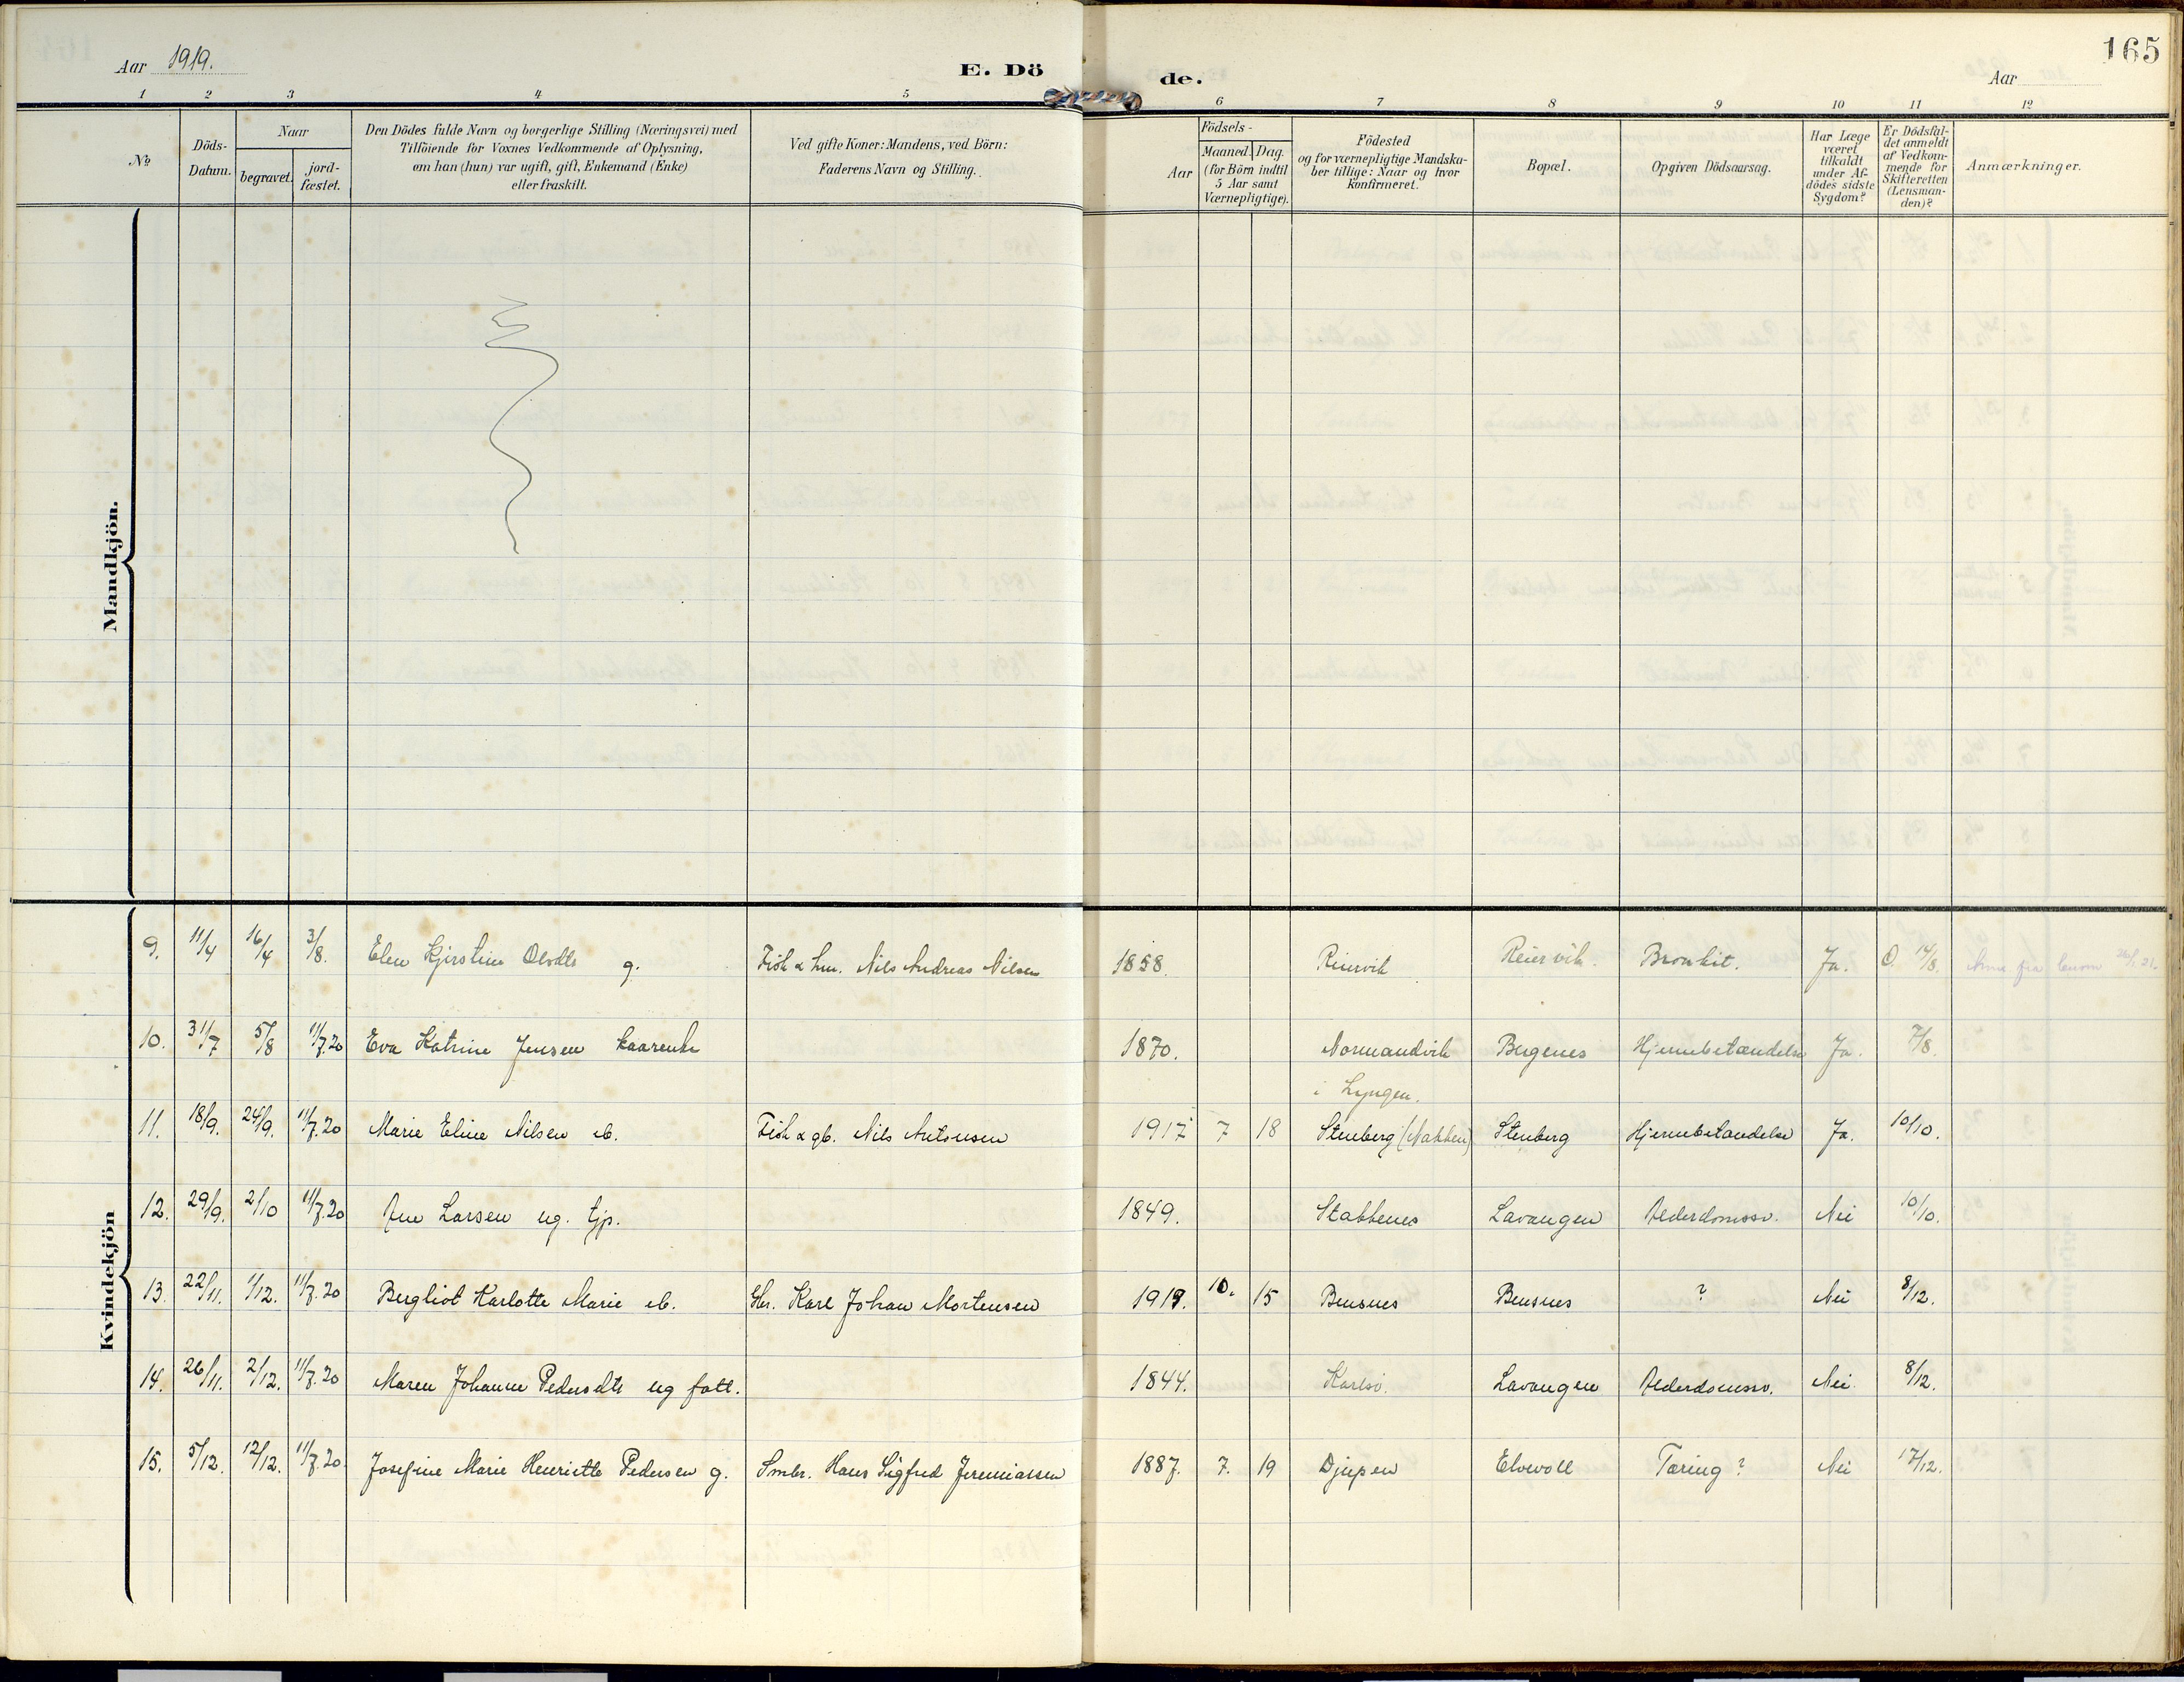 Aar 1919.
E. Dö
de.
Aar
165
1 2 3 4 5 6 7 8 9 10 11 12
No
Döds-
Datum.
Naar
begravet.
jord-
fæstet.
Den Dödes fulde Navn og borgerlige Stilling (Næringsvei) med
Tilföiende for Voxnes Vedkommende af Oplysning,
om han (hun) var ugift, gift, Enkemand (Enke)
eller fraskilt.
Ved gifte Koner: Mandens, ved Börn:
Faderens Navn og Stilling.
Födsels-
Aar
Maaned. Dag.
(for Börn indtil
5 Aar samt
Værnepligtige).
Födested
og for værnepligtige Mandska-
ber tillige: Naar og hvor
konfirmeret.
Bopæl.
Opgiven Dödsaarsag.
Har Læge
været
tilkaldt
under Af-
dödes sidste
Sygdom?
Er Dödsfal-
det anmeldt
af Vedkom-
mende for
Skifteretten
(Lensman-
den)?
Anmærkninger.
Mandkjön.
Kvindekjön
9. 11/4 16/4 3/8. Elen Kjirstine Olsdtr g. Fisk & hm. Nils Andreas Nilsen 1858. Reiervik Reiervik. Bronkit. Ja. 0. 14/8. fra
10. 31/7 5/8 11/7.20 Eva Katrine Jensen kaarenke 1870. Normandvik Bergenes Hjernebetændelse Ja. 7/8.
i Lyngen.
11. 18/9. 24/9. 11/7.20 Marie Eline Nilsen eb. Fisk & gb. Nils Antonsen 1917 7 18 Stenberg (Nakken) Stenberg Hjernebetændelse Ja. 10/10.
12. 29/9. 2/10 11/7.20 Ane Larsen ug. tjp. 1849. Stakkenes Lavangen Alderdomssv. Nei 10/10.
13. 22/11. 1/12. 11/7.20 Bergliot Karlotte Marie eb. Gbr. Karl Johan Mortensen 1919. 10. 15 Bensnes Bensnes ? Nei 8/12.
14. 26/11. 2/12. 11/7.20 Maren Johanne Pedersdtr ug fatt. 1844. Karlsö. Lavangen Alderdomssv. Nei 8/12.
15. 5/12. 12/12. 11/7.20 Josefine Marie Henriette Pedersen g. Smbr. Hans Sigfred Jeremiassen 1887. 7. 19 Djupen Elvevoll Tæring? Nei 17/12.